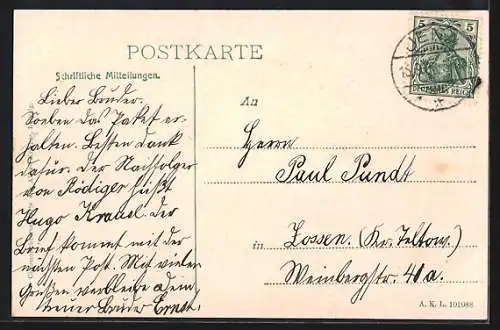 POSTKARTE
Schriftliche Mitteilungen.
Lieber Bruder.
Soeben das Paket er-
halten. Besten Dank
dafür. Der Nachfolger
von Rödiger heißt
Hugo Der
Brief kommt mit der
nächsten Post. Mit vielen
Grüßen verbleibe ich Dein
treuer Bruder Ernst.
5 5
DEUTSCHES REICH
JENA
An
Herrn
Paul Pundt
in Zossen. (Kr. Teltow.)
Weinbergstr. 41a.
A. K. L. 191088